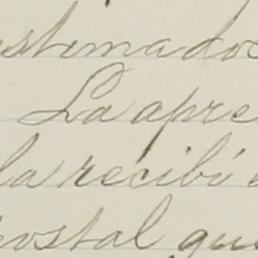 estimados
La apre
la recibí e
postal que